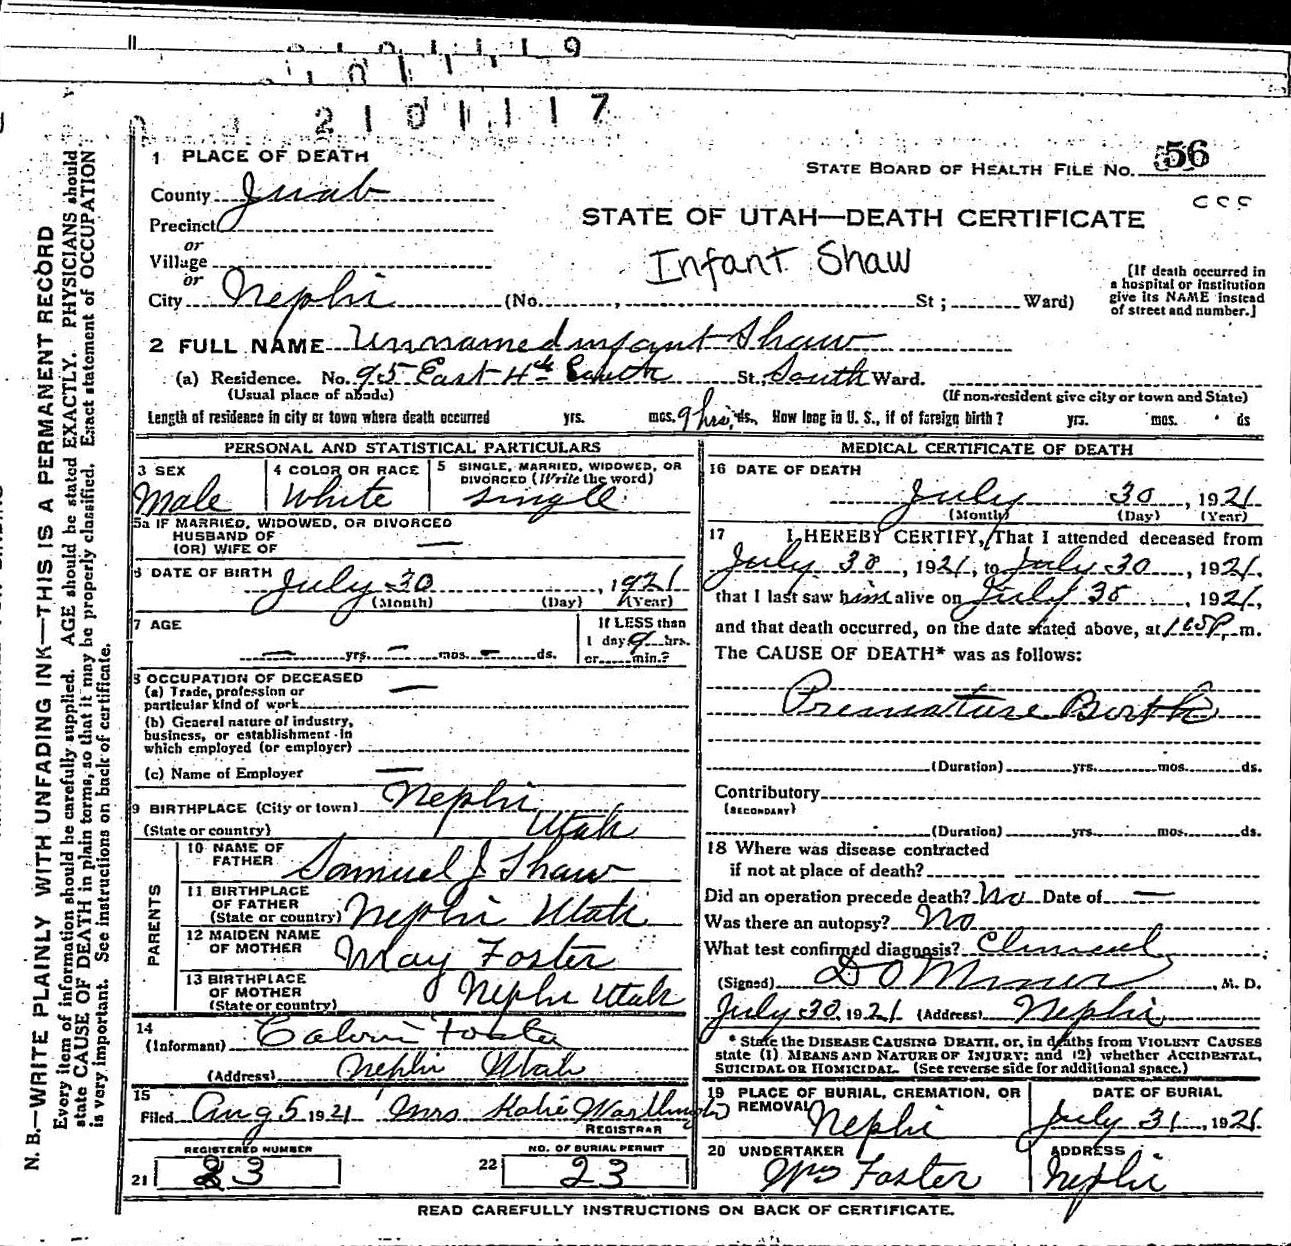 2101119
10111
2101117
1 PLACE OF DEATH
STATE BOARD OF HEALTH FILE No. 56
County Juab
CCC
STATE OF UTAH—DEATH CERTIFICATE
Precinct
or
Village
Infant Shaw
[If death occurred in a hospital or institution give its NAME instead of street and number.]
or
City Nephi (No. , St ; Ward)
2 FULL NAME Unnamed infant Shaw
(a) Residence. No. 95 East 4th South St., South Ward.
(Usual place of abode) (If non-resident give city or town and State)
Length of residence in city or town where death occurred yrs. mos. 9 hrs. ds. How long in U. S., if of foreign birth? yrs. mos. ds
PERSONAL AND STATISTICAL PARTICULARS
3 SEX Male
4 COLOR OR RACE White
5 SINGLE, MARRIED, WIDOWED, OR DIVORCED (Write the word) Single
5a IF MARRIED, WIDOWED, OR DIVORCED
HUSBAND OF
(OR) WIFE OF —
6 DATE OF BIRTH July 30, 1921
(Month) (Day) (Year)
7 AGE
— yrs. — mos. — ds.
If LESS than
1 day 9 hrs.
or min.?
8 OCCUPATION OF DECEASED
(a) Trade, profession or
particular kind of work —
(b) General nature of industry,
business, or establishment in
which employed (or employer)
(c) Name of Employer —
9 BIRTHPLACE (City or town) Nephi
(State or country) Utah
PARENTS
10 NAME OF FATHER Samuel J Shaw
11 BIRTHPLACE OF FATHER (State or country) Nephi Utah
12 MAIDEN NAME OF MOTHER May Foster
13 BIRTHPLACE OF MOTHER (State or country) Nephi Utah
14
(Informant) Calvin Foster
(Address) Nephi Utah
15
Filed Aug 5, 1921 Mrs Katie Worthington
REGISTRAR
REGISTERED NUMBER
21 23
NO. OF BURIAL PERMIT
22 23
MEDICAL CERTIFICATE OF DEATH
16 DATE OF DEATH
July 30, 1921
(Month) (Day) (Year)
17 I HEREBY CERTIFY, That I attended deceased from
July 30, 1921, to July 30, 1921,
that I last saw him alive on July 30, 1921,
and that death occurred, on the date stated above, at 105P. m.
The CAUSE OF DEATH* was as follows:
Premature Birth
(Duration) yrs. mos. ds.
Contributory
(SECONDARY)
(Duration) yrs. mos. ds.
18 Where was disease contracted
if not at place of death?
Did an operation precede death? No Date of —
Was there an autopsy? No
What test confirmed diagnosis? Clinical
(Signed) D O Miner, M. D.
July 30, 1921 (Address) Nephi
* State the DISEASE CAUSING DEATH, or, in deaths from VIOLENT CAUSES
state (1) MEANS AND NATURE OF INJURY; and (2) whether ACCIDENTAL,
SUICIDAL OR HOMICIDAL. (See reverse side for additional space.)
19 PLACE OF BURIAL, CREMATION, OR REMOVAL Nephi
DATE OF BURIAL July 31, 1921
20 UNDERTAKER Wm Foster
ADDRESS Nephi
READ CAREFULLY INSTRUCTIONS ON BACK OF CERTIFICATE.
N. B.—WRITE PLAINLY WITH UNFADING INK—THIS IS A PERMANENT RECORD
Every item of information should be carefully supplied. AGE should be stated EXACTLY. PHYSICIANS should
state CAUSE OF DEATH in plain terms, so that it may be properly classified. Exact statement of OCCUPATION
is very important. See instructions on back of certificate.